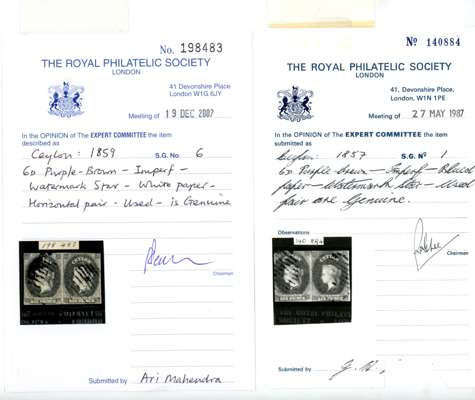 No. 198483
THE ROYAL PHILATELIC SOCIETY
LONDON
41 Devonshire Place
London W1G 6JY
Meeting of 19 DEC 2007
In the OPINION of The EXPERT COMMITTEE the item
described as
Ceylon: 1859 S.G. No. 6
6D Purple-Brown - Imperf -
Watermark Star - White paper -
Horizontal pair - Used - is Genuine
198483
SIX PENCE SIX PENCE
Chairman
Submitted by Ari Mahendra
No 140884
THE ROYAL PHILATELIC SOCIETY
LONDON
41, Devonshire Place,
London, W1N 1PE
Meeting of 27 MAY 1987
In the OPINION of THE EXPERT COMMITTEE the item
submitted as
Ceylon: 1857 S.G. No 1
6D Purple-brown - Imperf - Blued
paper - Watermark Star - Used
pair are Genuine.
Observations
140 884
Chairman
Submitted by